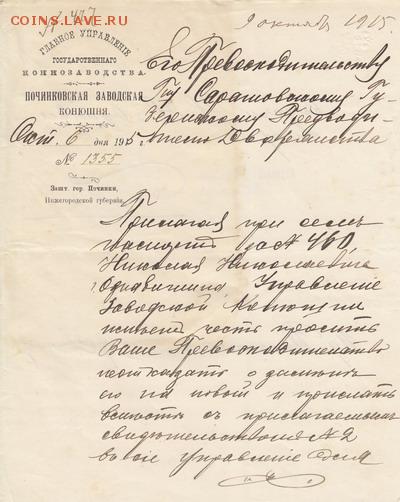 COINS.LAVE.RU
№ 477
9 октября 1915.
ГЛАВНОЕ УПРАВЛЕНІЕ
ГОСУДАРСТВЕННАГО
КОННОЗАВОДСТВА.
ПОЧИНКОВСКАЯ ЗАВОДСКАЯ
КОНЮШНЯ.
Окт. 6 дня 1915 г.
№ 1355
Зашт. гор. Починки,
Нижегородской губерніи.
Его Превосходительству
Гну Саратовскому Гу-
бернскому Предводи-
телю Дворянства
Прилагая при семъ
паспортъ за № 460
Николая Николаевича
Управленіе
Заводской Конюшни
имѣетъ честь просить
Ваше Превосходительство
о
его на новый и прислать
вмѣстѣ съ прилагаемымъ
свидѣтельствомъ № 2
управленіе